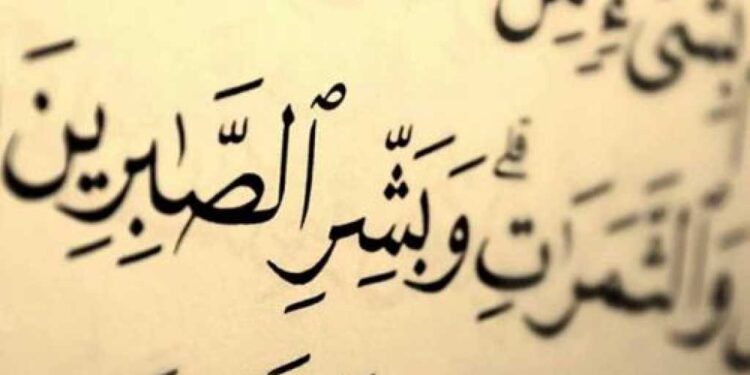 بِشَىْءٍ مِّنَ
وَٱلثَّمَرَٰتِ ۗ وَبَشِّرِ ٱلصَّٰبِرِينَ